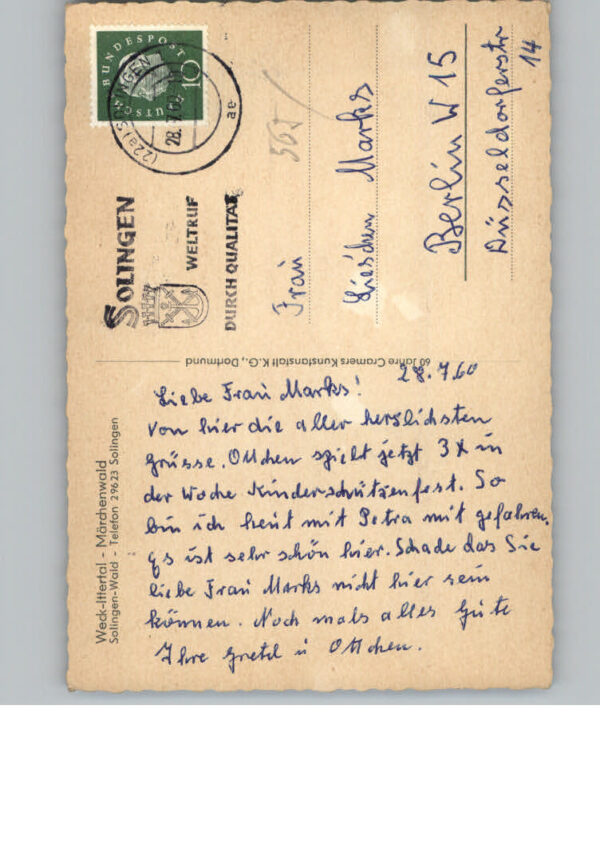 28.7.60
Liebe Frau Marks!
Von hier die aller herzlichsten
Grüsse. Ottchen spielt jetzt 3x in
der Woche Kinderschützenfest. So
bin ich heut mit Petra mit gefahren.
Es ist sehr schön hier. Schade das Sie
liebe Frau Marks nicht hier sein
können. Noch mals alles Gute
Ihre Gretel u Ottchen.
Weck-Ittertal - Märchenwald
Solingen-Wald - Telefon 2 96 23 Solingen
60 Jahre Cramers Kunstanstalt K.G., Dortmund
DEUTSCHE BUNDESPOST
10
(22a) SOLINGEN
28.7.60
ae
SOLINGEN
WELTRUF
DURCH QUALITÄT
Frau
Lieschen Marks
Berlin W 15
Düsseldorferstr
14